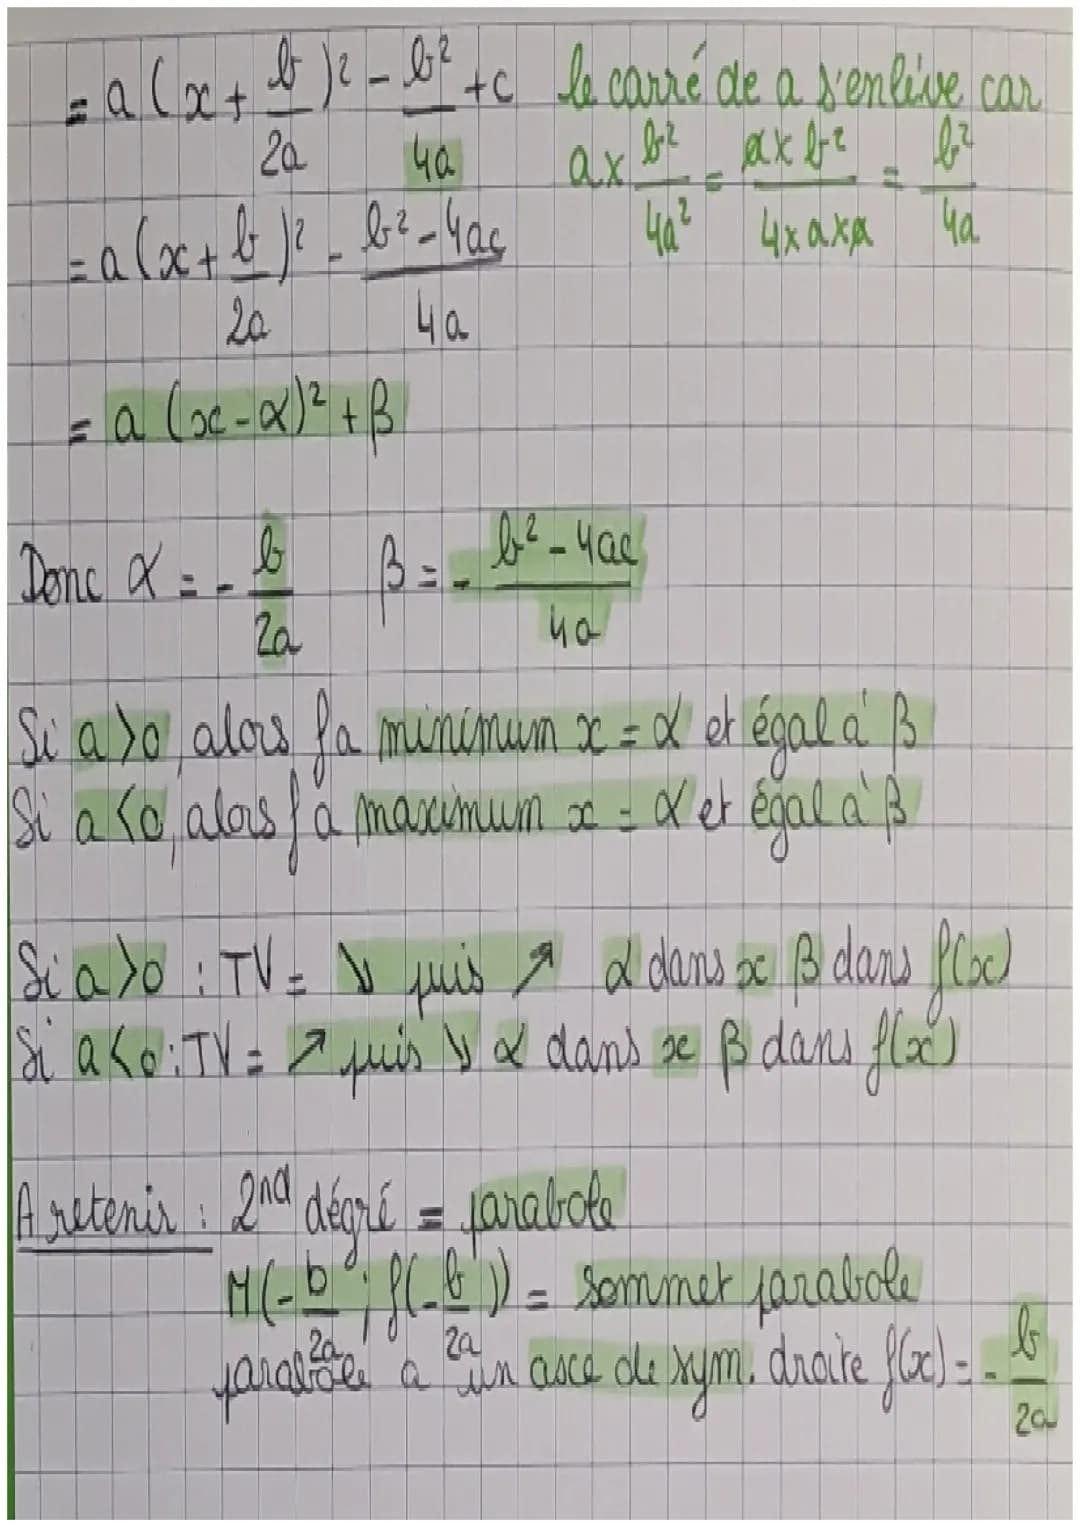 = a (x + b/2a)² - b²/4a + c le carré de a s'enlève car
a x b²/4a² = a x b²/4 x a x a = b²/4a
= a (x + b/2a)² - b² - 4ac/4a
= a (x - α)² + β
Donc α = - b/2a β = - b² - 4ac/4a
Si a > 0, alors f a minimum x = α et égal à β
Si a < 0, alors f a maximum x = α et égal à β
Si a > 0 : TV = ↘ puis ↗ α dans x β dans f(x)
Si a < 0 : TV = ↗ puis ↘ α dans x β dans f(x)
A retenir : 2nd dégré = parabole
M(- b/2a ; f(- b/2a)) = sommet parabole
parabole a un axe de sym. droite f(x) = - b/2a